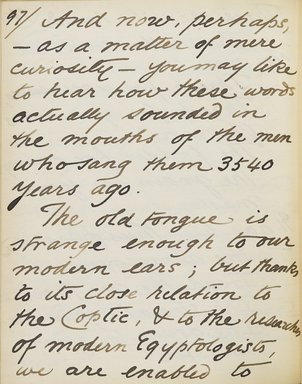 97/ And now, perhaps,
– as a matter of mere
curiosity – you may like
to hear how these words
actually sounded in
the mouths of the men
who sang them 3540
years ago.
The old tongue is
strange enough to our
modern ears; but thanks
to its close relation to
the Coptic, & to the researches
of modern Egyptologists,
we are enabled to